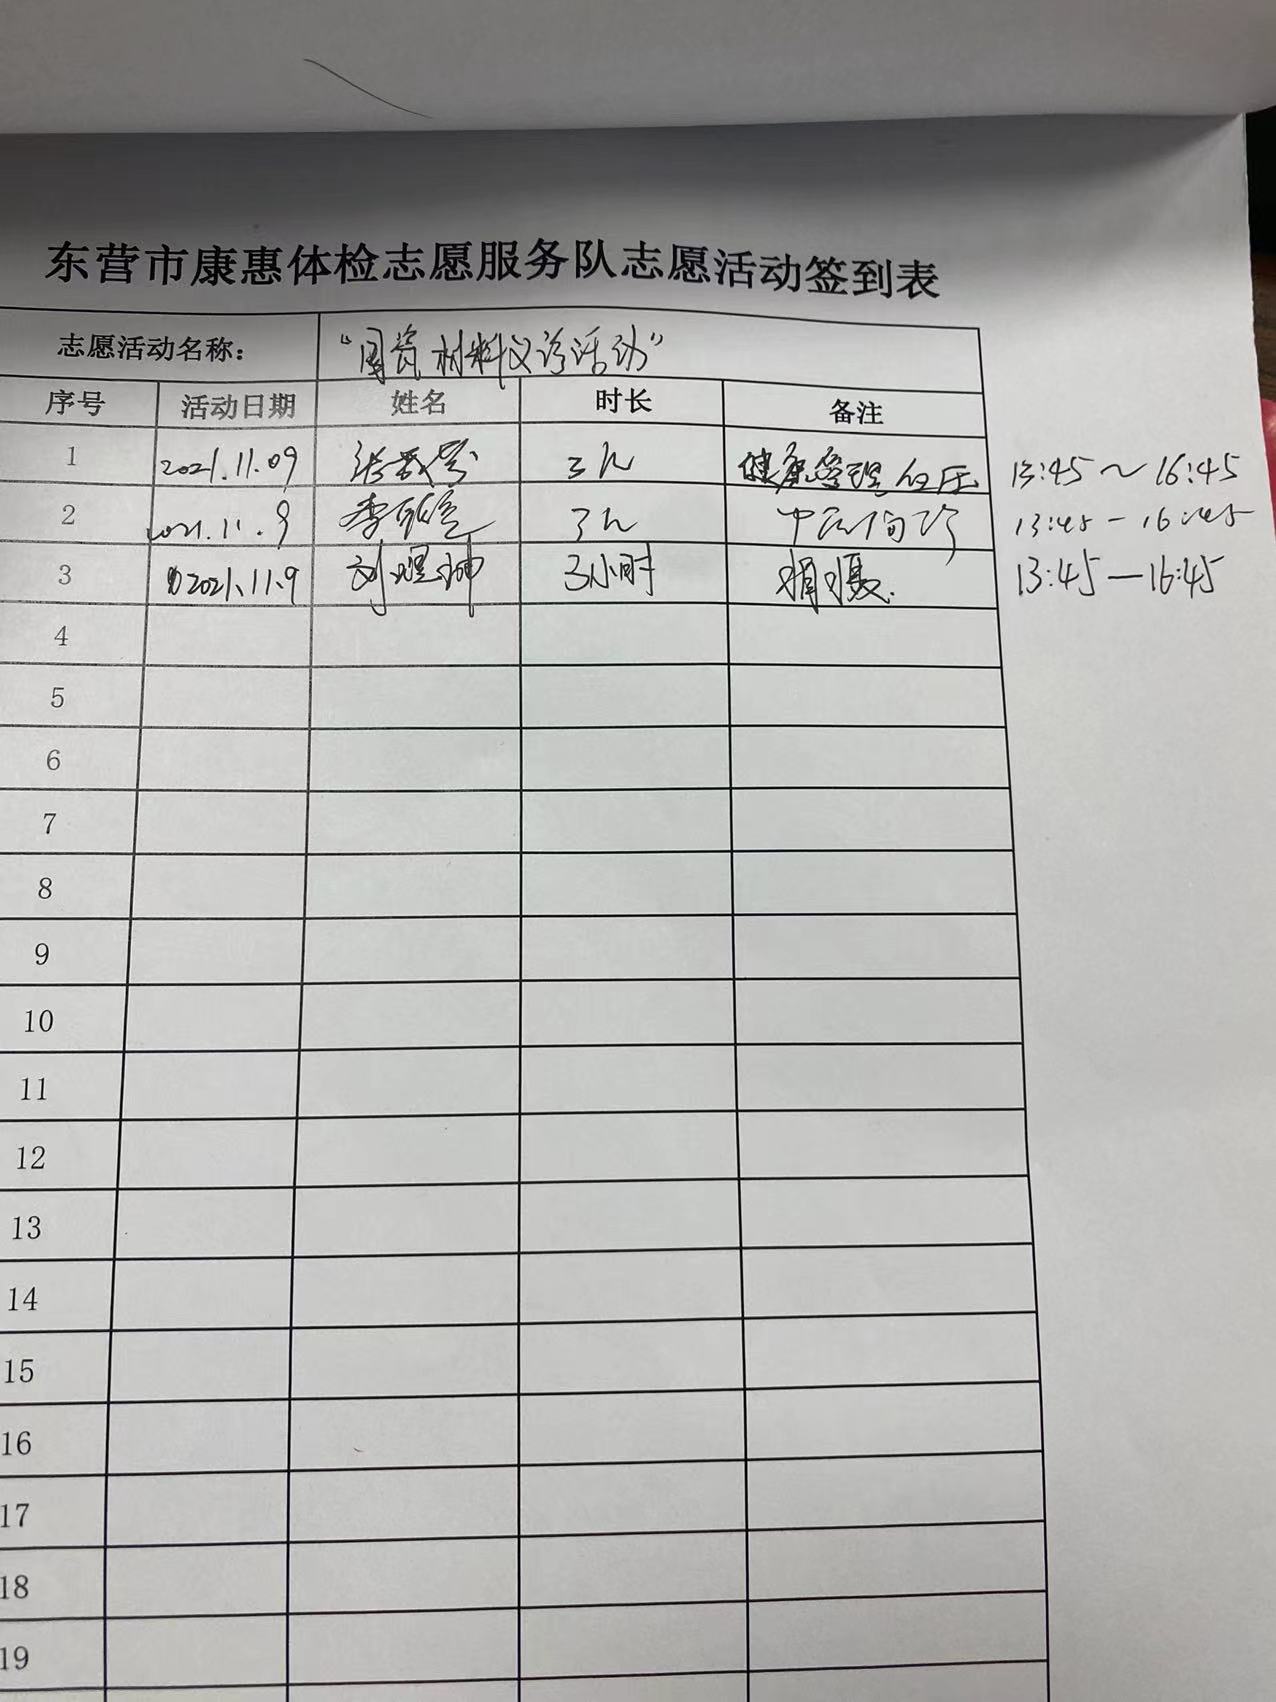 东营市康惠体检志愿服务队志愿活动签到表
志愿活动名称： “国瓷材料义诊活动”
序号 活动日期 姓名 时长 备注
1 2021.11.09 3h 健康管理 血压 13:45～16:45
2 2021.11.9 李 3h 中医问诊 13:45-16:45
3 2021.11.9 刘 坤 3小时 拍摄. 13:45—16:45
4
5
6
7
8
9
10
11
12
13
14
15
16
17
18
19